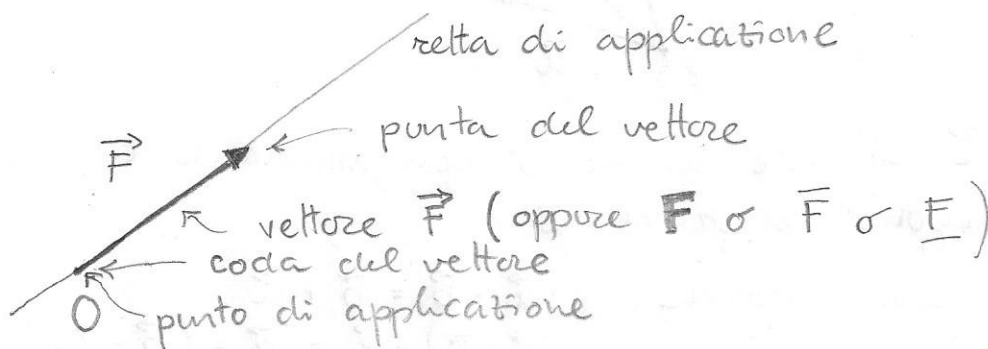 retta di applicazione
punta del vettore
F⃗
vettore F⃗ (oppure F o F̅ o F̲)
coda del vettore
O
punto di applicazione